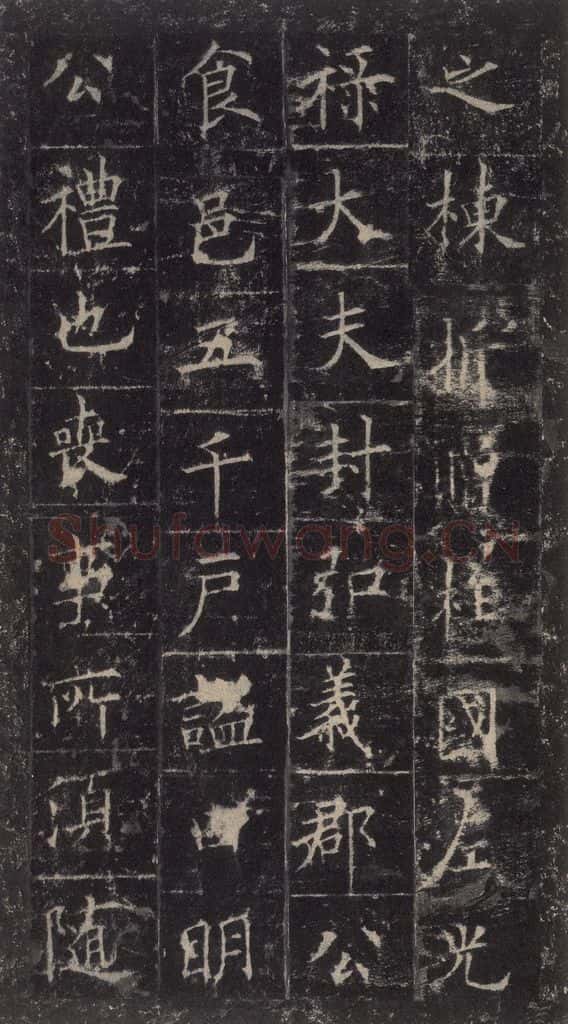 之棟折贈柱國左光
祿大夫封弘義郡公
食邑五千戶謚曰明
公禮也喪葬所湏随
Shufawang.CN